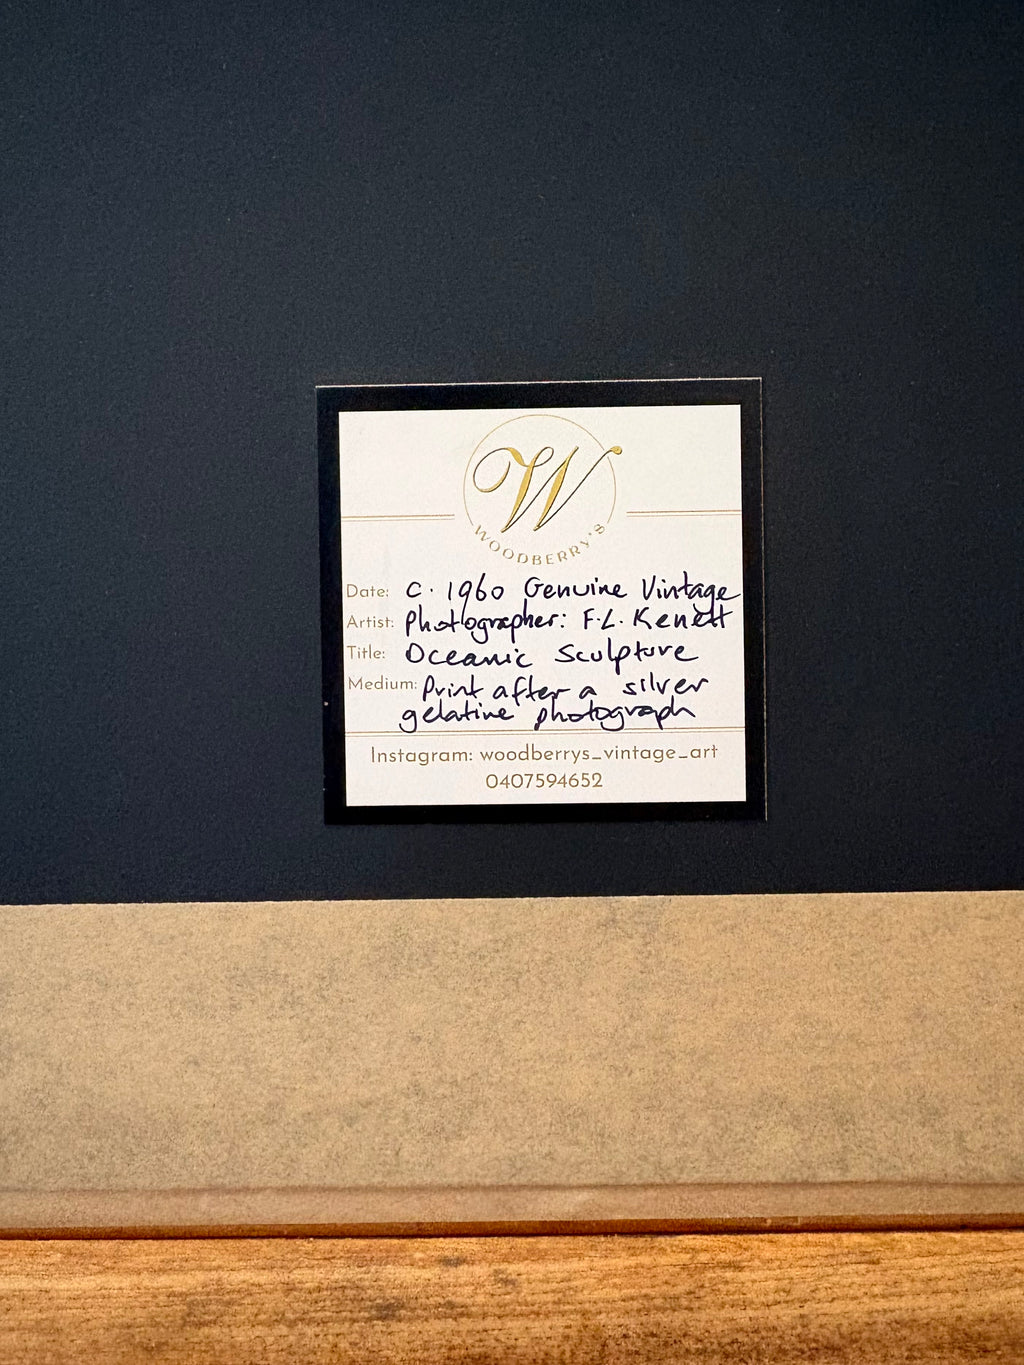 W
WOODBERRY'S
Date: C. 1960 Genuine Vintage
Artist: Photographer: F.L. Kenett
Title: Oceanic Sculpture
Medium: Print after a silver
gelatine photograph
Instagram: woodberrys_vintage_art
0407594652